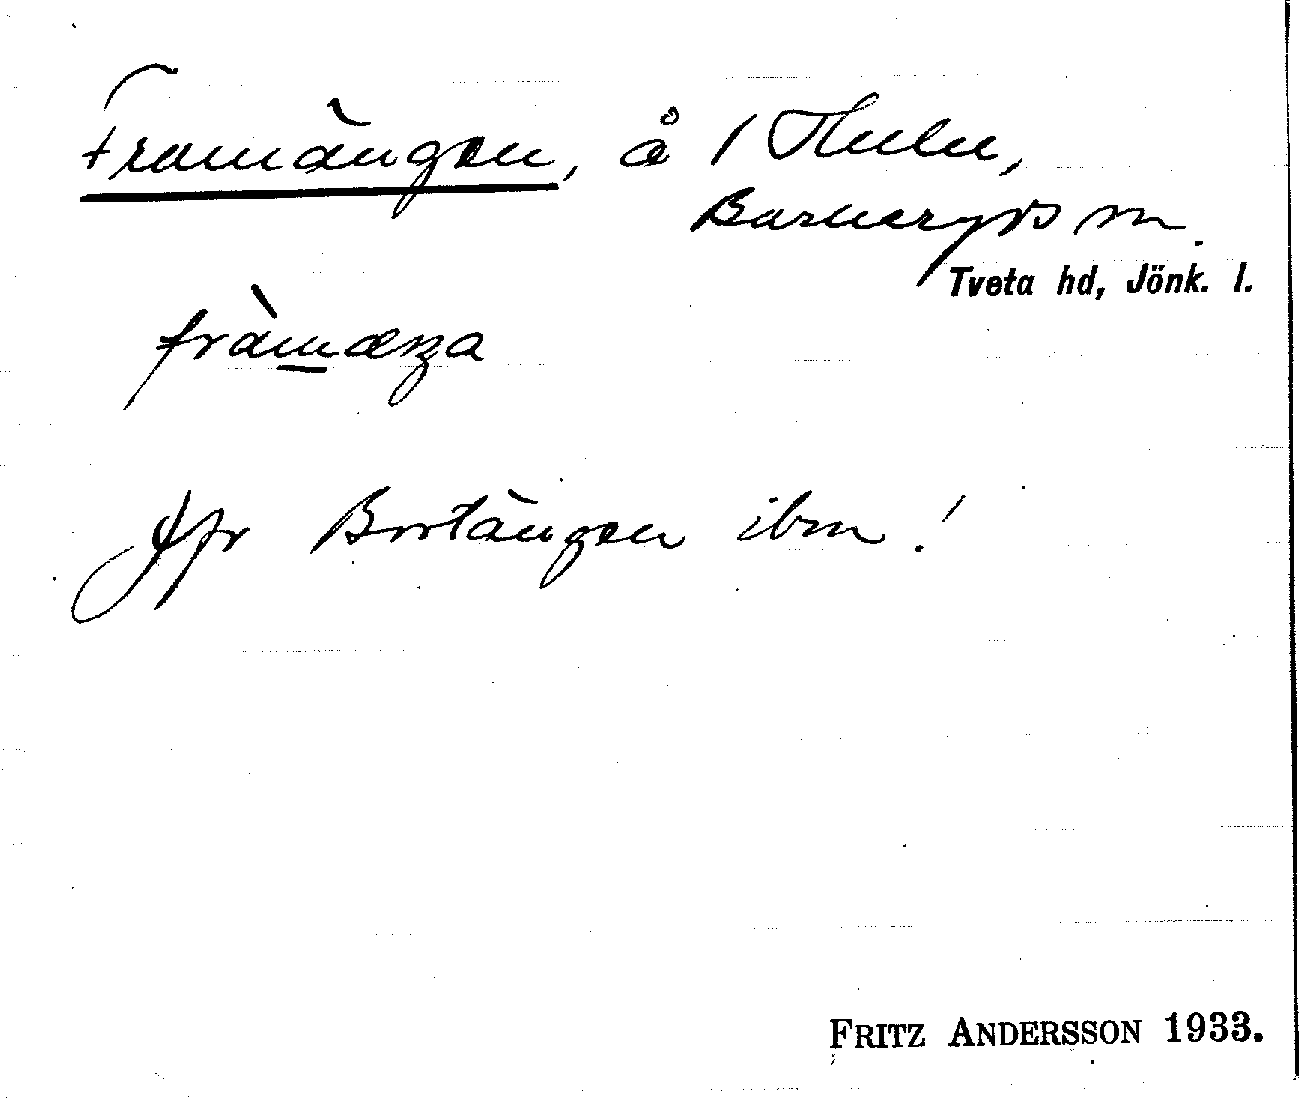 Framängen, å 1 Hulu,
Barkeryds sn.
Tveta hd, Jönk. l.
fràmæŋa
Jfr Bortängen ibm!
FRITZ ANDERSSON 1933.